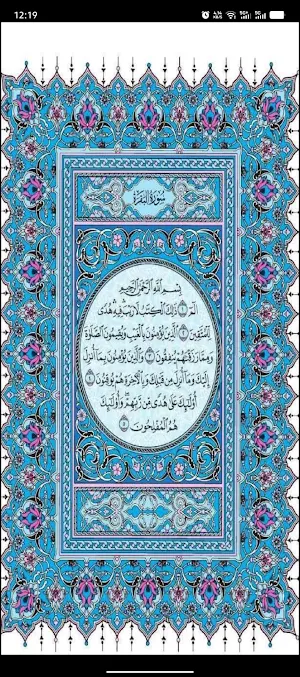 12:19
سورة البقرة
بسم الله الرحمن الرحيم
الٓمٓ ۝١ ذَٰلِكَ ٱلْكِتَٰبُ لَا رَيْبَ فِيهِ هُدًى
لِّلْمُتَّقِينَ ۝٢ ٱلَّذِينَ يُؤْمِنُونَ بِٱلْغَيْبِ وَيُقِيمُونَ ٱلصَّلَوٰةَ
وَمِمَّا رَزَقْنَٰهُمْ يُنفِقُونَ ۝٣ وَٱلَّذِينَ يُؤْمِنُونَ بِمَآ أُنزِلَ
إِلَيْكَ وَمَآ أُنزِلَ مِن قَبْلِكَ وَبِٱلْأَخِرَةِ هُمْ يُوقِنُونَ ۝٤
أُو۟لَٰٓئِكَ عَلَىٰ هُدًى مِّن رَّبِّهِمْ وَأُو۟لَٰٓئِكَ
هُمُ ٱلْمُفْلِحُونَ ۝٥